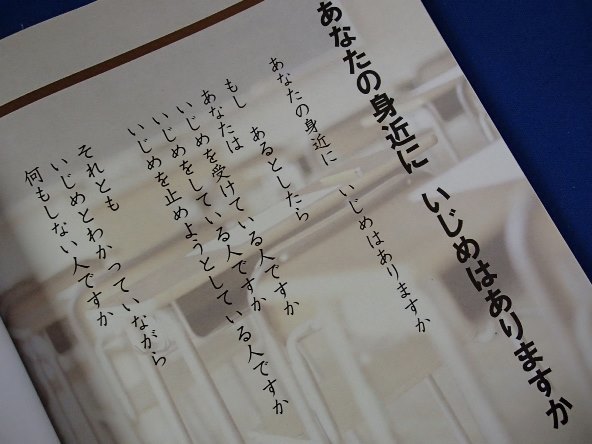 あなたの身近に　いじめはありますか
あなたの身近に　いじめはありますか
もし　あるとしたら
あなたは
いじめを受けている人ですか
いじめをしている人ですか
いじめを止めようとしている人ですか
それとも
いじめとわかっていながら
何もしない人ですか